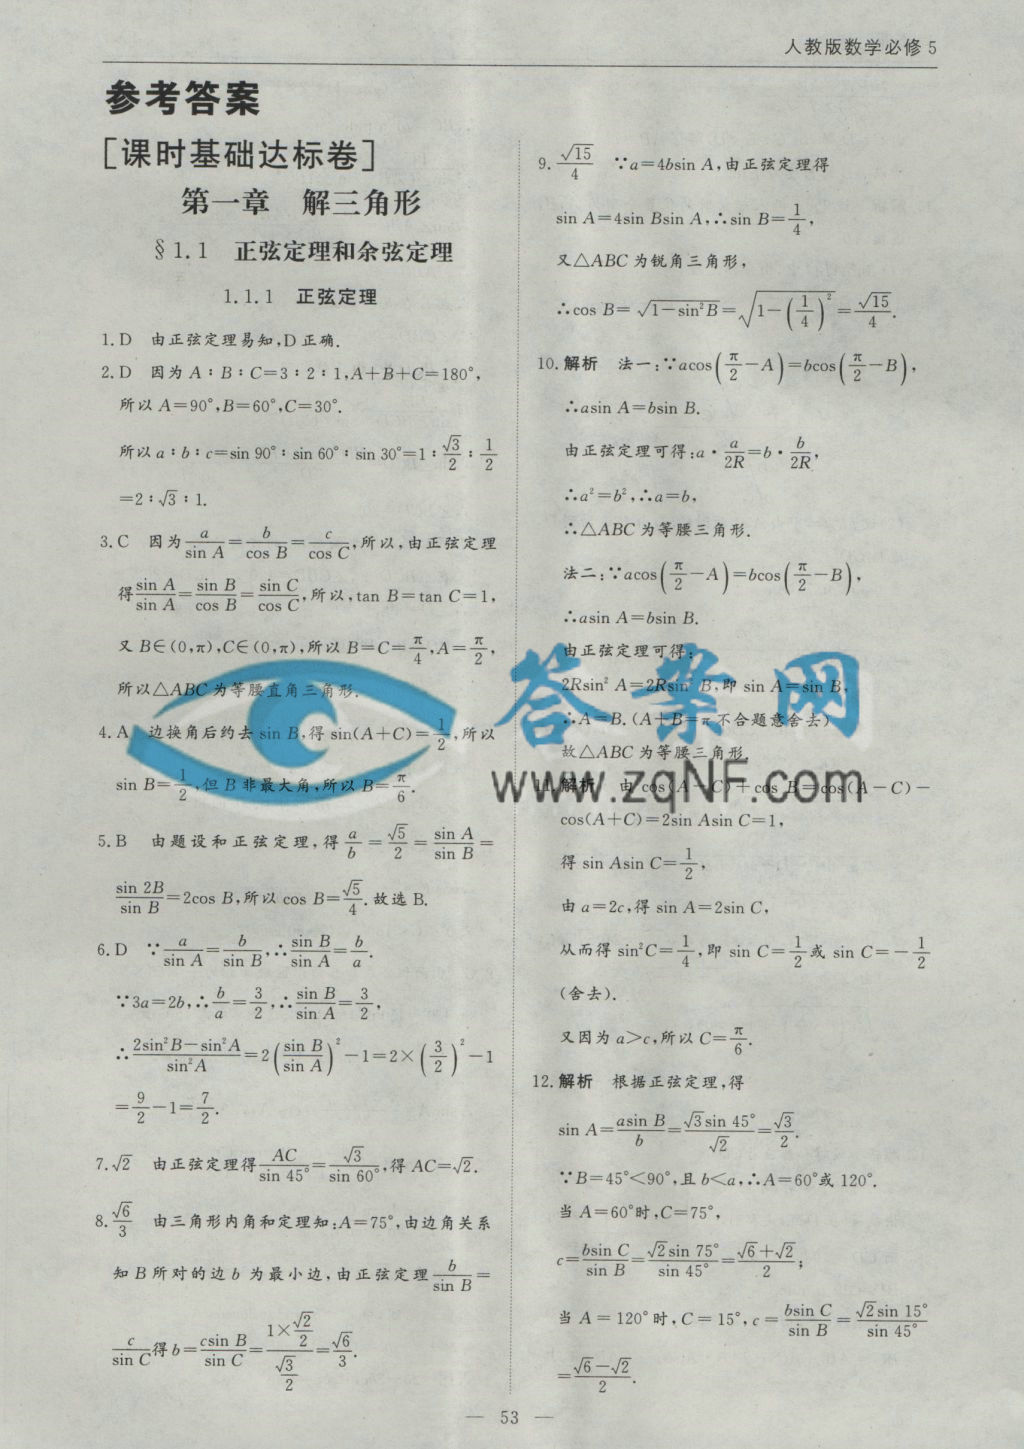 人教版数学必修 5
参考答案
[课时基础达标卷]
第一章 解三角形
§1.1 正弦定理和余弦定理
1.1.1 正弦定理
1.D 由正弦定理易知,D正确.
2.D 因为 A∶B∶C=3∶2∶1,A+B+C=180°,
所以 A=90°,B=60°,C=30°.
所以 a∶b∶c=sin 90°∶sin 60°∶sin 30°=1∶√3/2∶1/2
=2∶√3∶1.
3.C 因为 a/sin A=b/cos B=c/cos C,所以,由正弦定理
得 sin A/sin A=sin B/cos B=sin C/cos C,所以,tan B=tan C=1,
又 B∈(0,π),C∈(0,π),所以 B=C=π/4,A=π/2,
所以△ABC为等腰直角三角形.
4.A 边换角后约去 sin B,得 sin(A+C)=1/2,所以
sin B=1/2,但 B 非最大角,所以 B=π/6.
5.B 由题设和正弦定理,得 a/b=√5/2=sin A/sin B=
sin 2B/sin B=2cos B,所以 cos B=√5/4.故选 B.
6.D ∵a/sin A=b/sin B,∴sin B/sin A=b/a.
∵3a=2b,∴b/a=3/2,∴sin B/sin A=3/2,
∴(2sin²B-sin²A)/sin²A=2(sin B/sin A)²-1=2×(3/2)²-1
=9/2-1=7/2.
7.√2 由正弦定理得 AC/sin 45°=√3/sin 60°,得 AC=√2.
8.√6/3 由三角形内角和定理知:A=75°,由边角关系
知 B 所对的边 b 为最小边,由正弦定理 b/sin B=
c/sin C得 b=csin B/sin C=(1×√2/2)/(√3/2)=√6/3.
9.√15/4 ∵a=4bsin A,由正弦定理得
sin A=4sin Bsin A,∴sin B=1/4,
又△ABC为锐角三角形,
∴cos B=√(1-sin²B)=√(1-(1/4)²)=√15/4.
10.解析 法一:∵acos(π/2-A)=bcos(π/2-B),
∴asin A=bsin B.
由正弦定理可得:a·a/2R=b·b/2R,
∴a²=b²,∴a=b,
∴△ABC为等腰三角形.
法二:∵acos(π/2-A)=bcos(π/2-B),
∴asin A=bsin B.
由正弦定理可得:
2Rsin² A=2Rsin² B,即 sin A=sin B,
∴A=B.(A+B=π不合题意舍去)
故△ABC为等腰三角形.
11.解析 由 cos(A-C)+cos B=cos(A-C)-
cos(A+C)=2sin Asin C=1,
得 sin Asin C=1/2,
由 a=2c,得 sin A=2sin C,
从而得 sin²C=1/4,即 sin C=1/2或 sin C=-1/2
(舍去).
又因为 a>c,所以 C=π/6.
12.解析 根据正弦定理,得
sin A=asin B/b=√3sin 45°/√2=√3/2.
∵B=45°<90°,且 b<a,∴A=60°或 120°.
当 A=60°时,C=75°,
c=bsin C/sin B=√2sin 75°/sin 45°=(√6+√2)/2;
当 A=120°时,C=15°,c=bsin C/sin B=√2sin 15°/sin 45°
=(√6-√2)/2.
答案网
www.zqNF.com
— 53 —